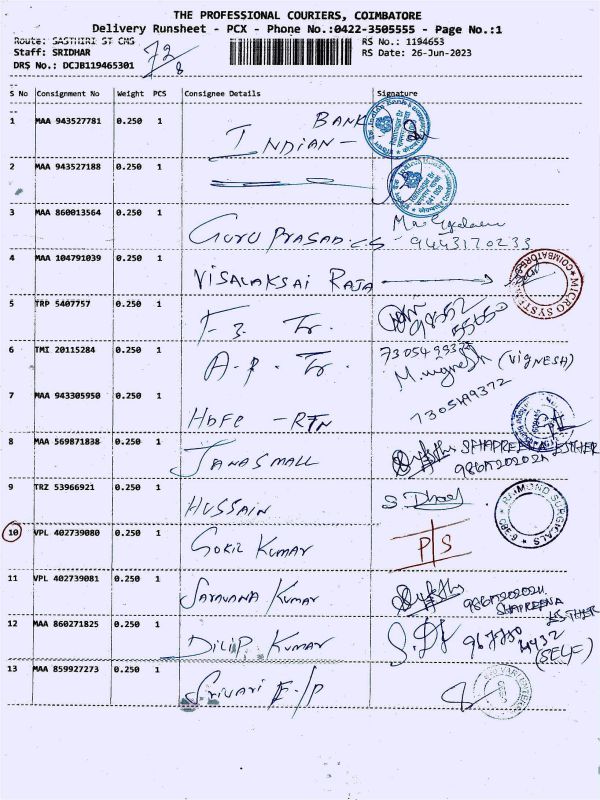 THE PROFESSIONAL COURIERS, COIMBATORE
Delivery Runsheet - PCX - Phone No.:0422-3505555 - Page No.:1
Route: SASTHIRI ST CMS
RS No.: 1194653
Staff: SRIDHAR
RS Date: 26-Jun-2023
DRS No.: DCJB119465301
S No Consignment No Weight PCS Consignee Details Signature
1 MAA 943527781 0.250 1 INDIAN - BANK
2 MAA 943527188 0.250 1
3 MAA 860013564 0.250 1 GURU PRASAD.CS - 9443170233
4 MAA 104791039 0.250 1 VISALAKSAI RAJA
MICRO SYSTEMS COIMBATORE
5 TRP 5407757 0.250 1
6 TMI 20115284 0.250 1 (VIGNESA)
7 MAA 943305950 0.250 1 HDFC - RTN
8 MAA 569871838 0.250 1 JANA SMALL SHAPREENA ESTHER
9 TRZ 53966921 0.250 1 HUSSAIN
SURGICALS CBE-9
10 VPL 402739080 0.250 1 GOKIL KUMAR P/S
11 VPL 402739081 0.250 1 SARAVANA KUMAR SHAPREENA ESTHER
12 MAA 860271825 0.250 1 DILIP KUMAR (SELF)
13 MAA 859927273 0.250 1 SRIVARI E/P